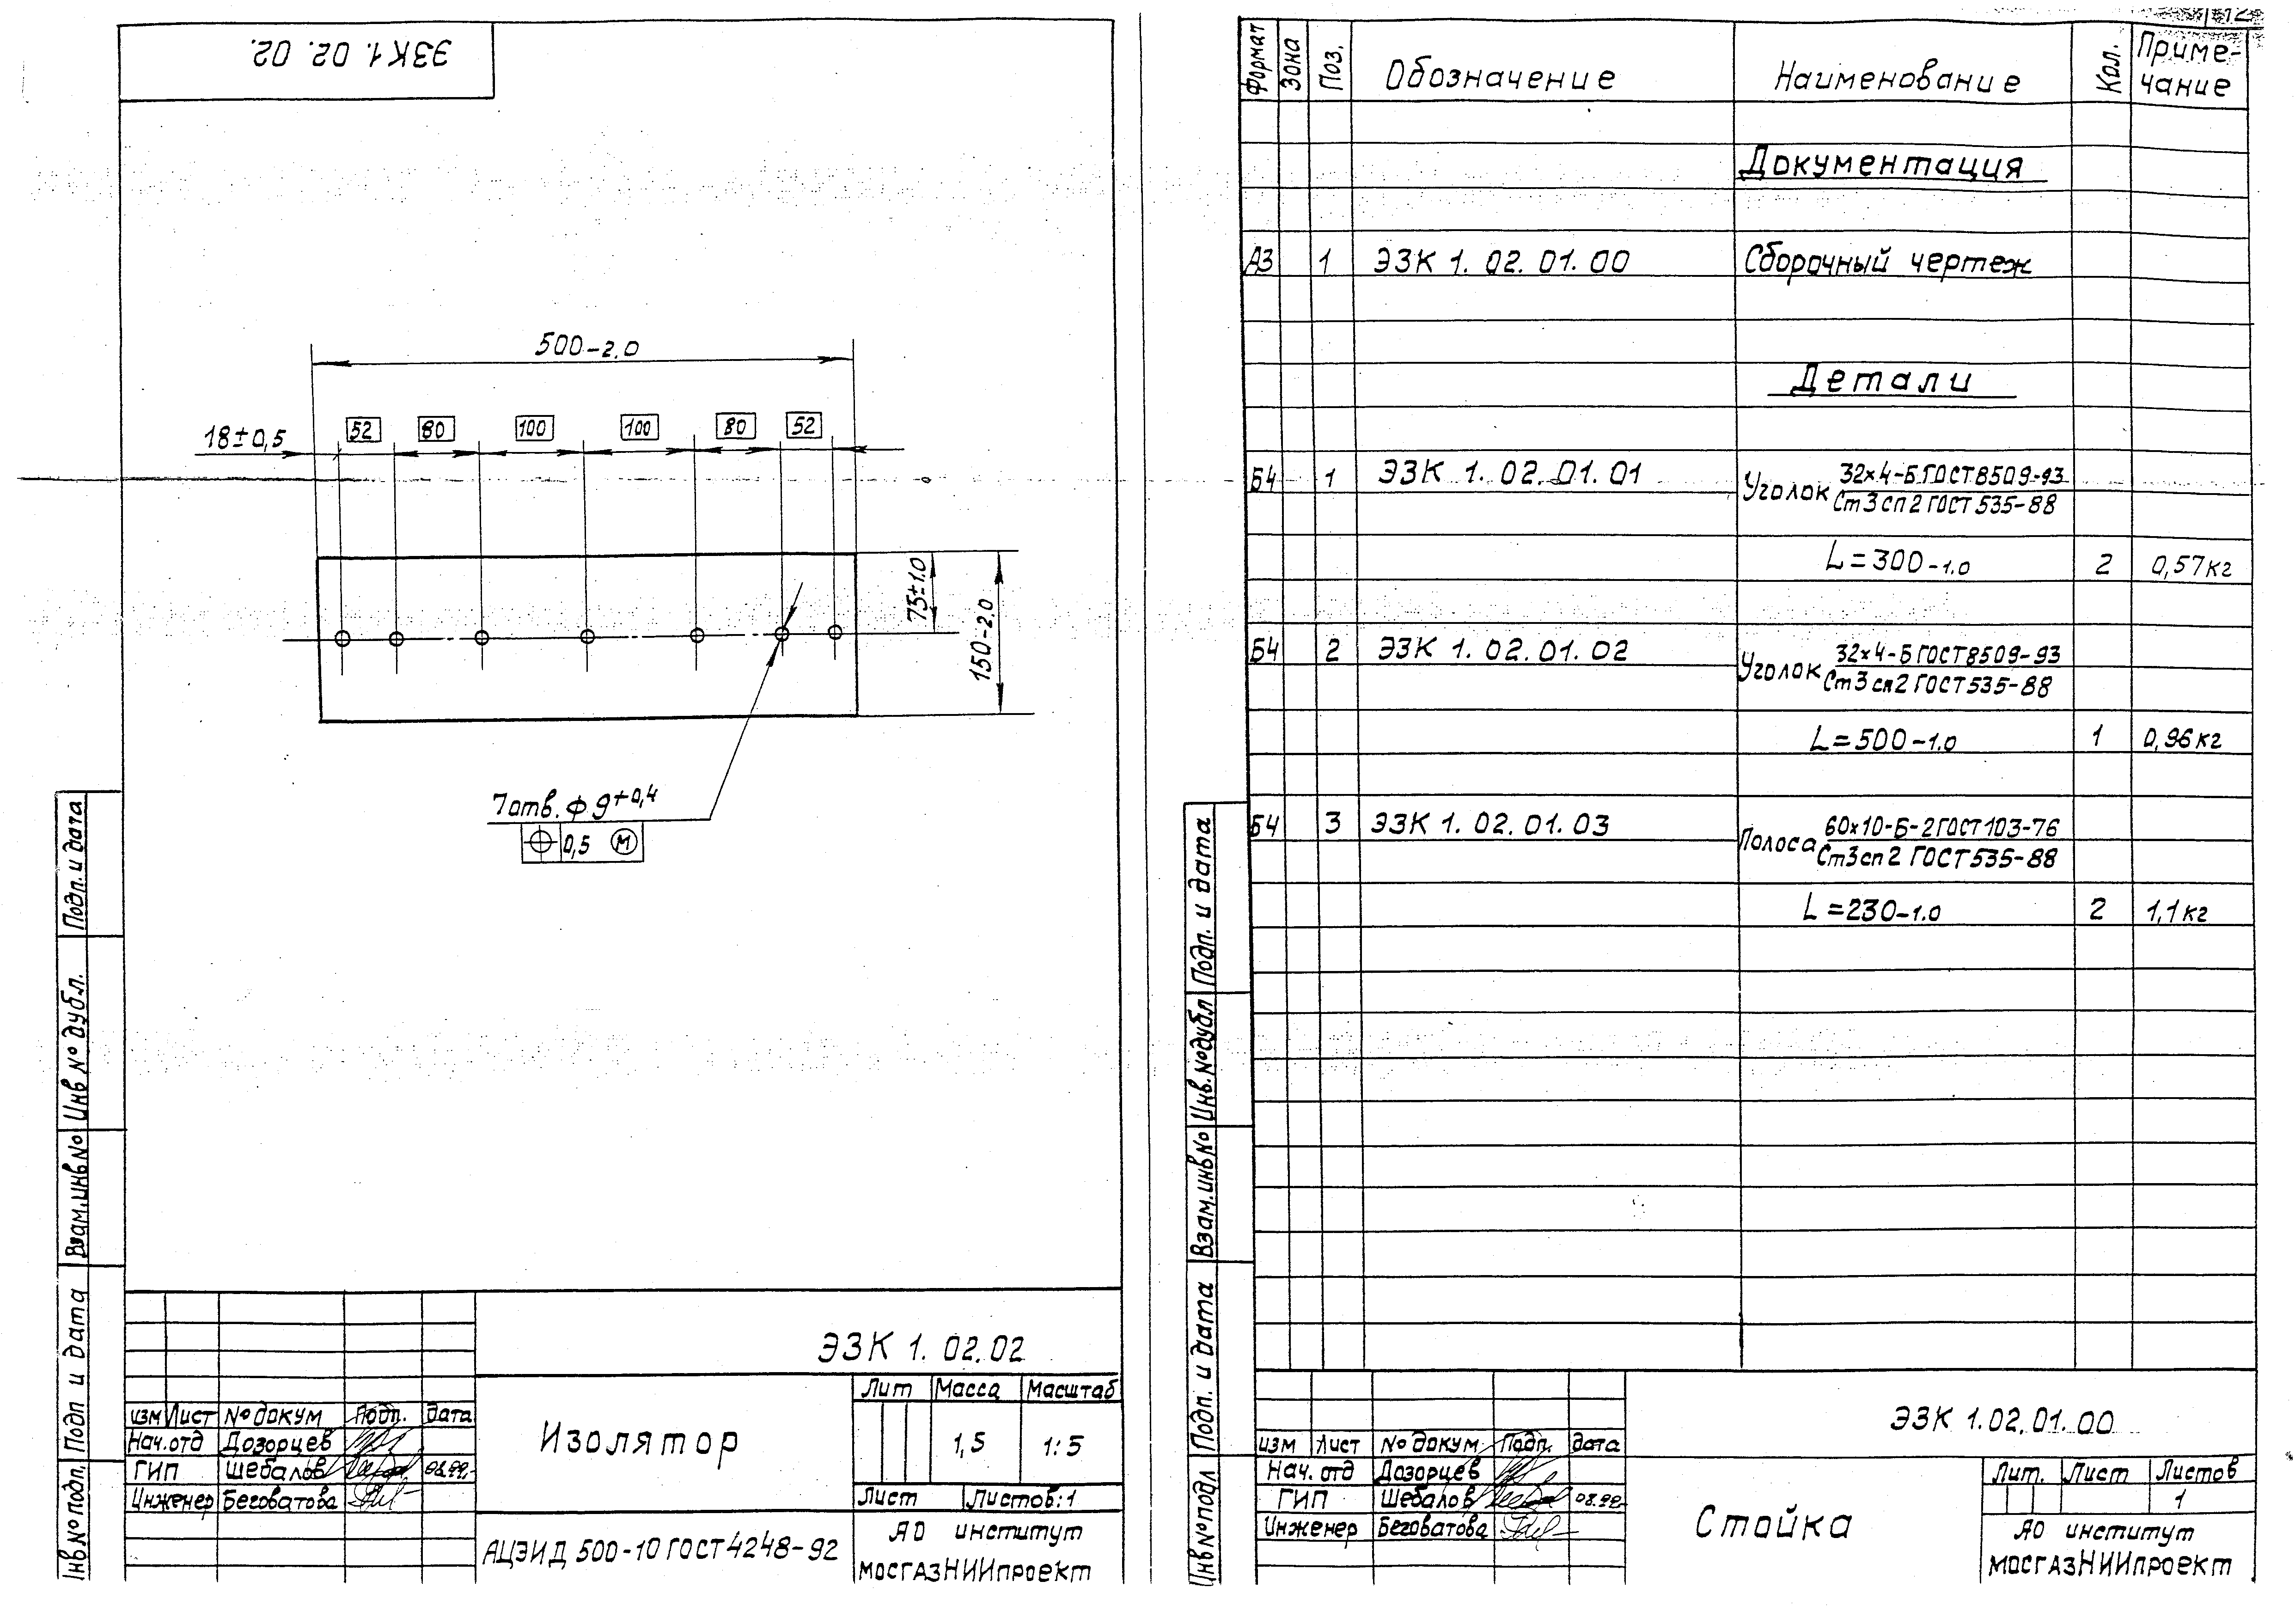 ЭЗК 1. 02. 02.
500-2,0
18±0,5
52
80
100
100
80
52
75±1.0
150-2,0
7отв. ф 9+0,4
0,5 М
Подп. и дата
Инв № дубл.
Взам.инв№
Подп и дата
Инв № подл.
ЭЗК 1. 02.02
изм Лист № докум Подп. Дата
Нач.отд Дозорцев
ГИП Шебалов
Инженер Беговатова
Изолятор
Лит Масса Масштаб
1,5 1:5
Лист Листов:1
АЦЭИД 500-10 ГОСТ 4248-92
ЯО институт
МосгазНИИпроект
Формат Зона Поз. Обозначение Наименование Кол. Приме-
чание
Документация
А3 1 ЭЗК 1. 02. 01. 00 Сборочный чертеж
Детали
Б4 1 ЭЗК 1. 02. 01. 01 Уголок 32х4-Б ГОСТ 8509-93
Ст3 сп2 ГОСТ 535-88
L=300-1.0 2 0,57кг
Б4 2 ЭЗК 1. 02. 01. 02 Уголок 32х4-Б ГОСТ 8509-93
Ст3 сп2 ГОСТ 535-88
L=500-1.0 1 0,96кг
Б4 3 ЭЗК 1. 02. 01. 03 Полоса 60х10-Б-2 ГОСТ 103-76
Ст3сп2 ГОСТ 535-88
L=230-1.0 2 1,1кг
Подп. и дата
Инв.№дубл
Взам.инв№
Подп. и дата
Инв№подл
ЭЗК 1.02.01.00
изм Лист № докум Подп. дата
Нач. отд Дозорцев
ГИП Шебалов
Инженер Беговатова
Стойка
Лит. Лист Листов
1
ЯО институт
МосгазНИИпроект